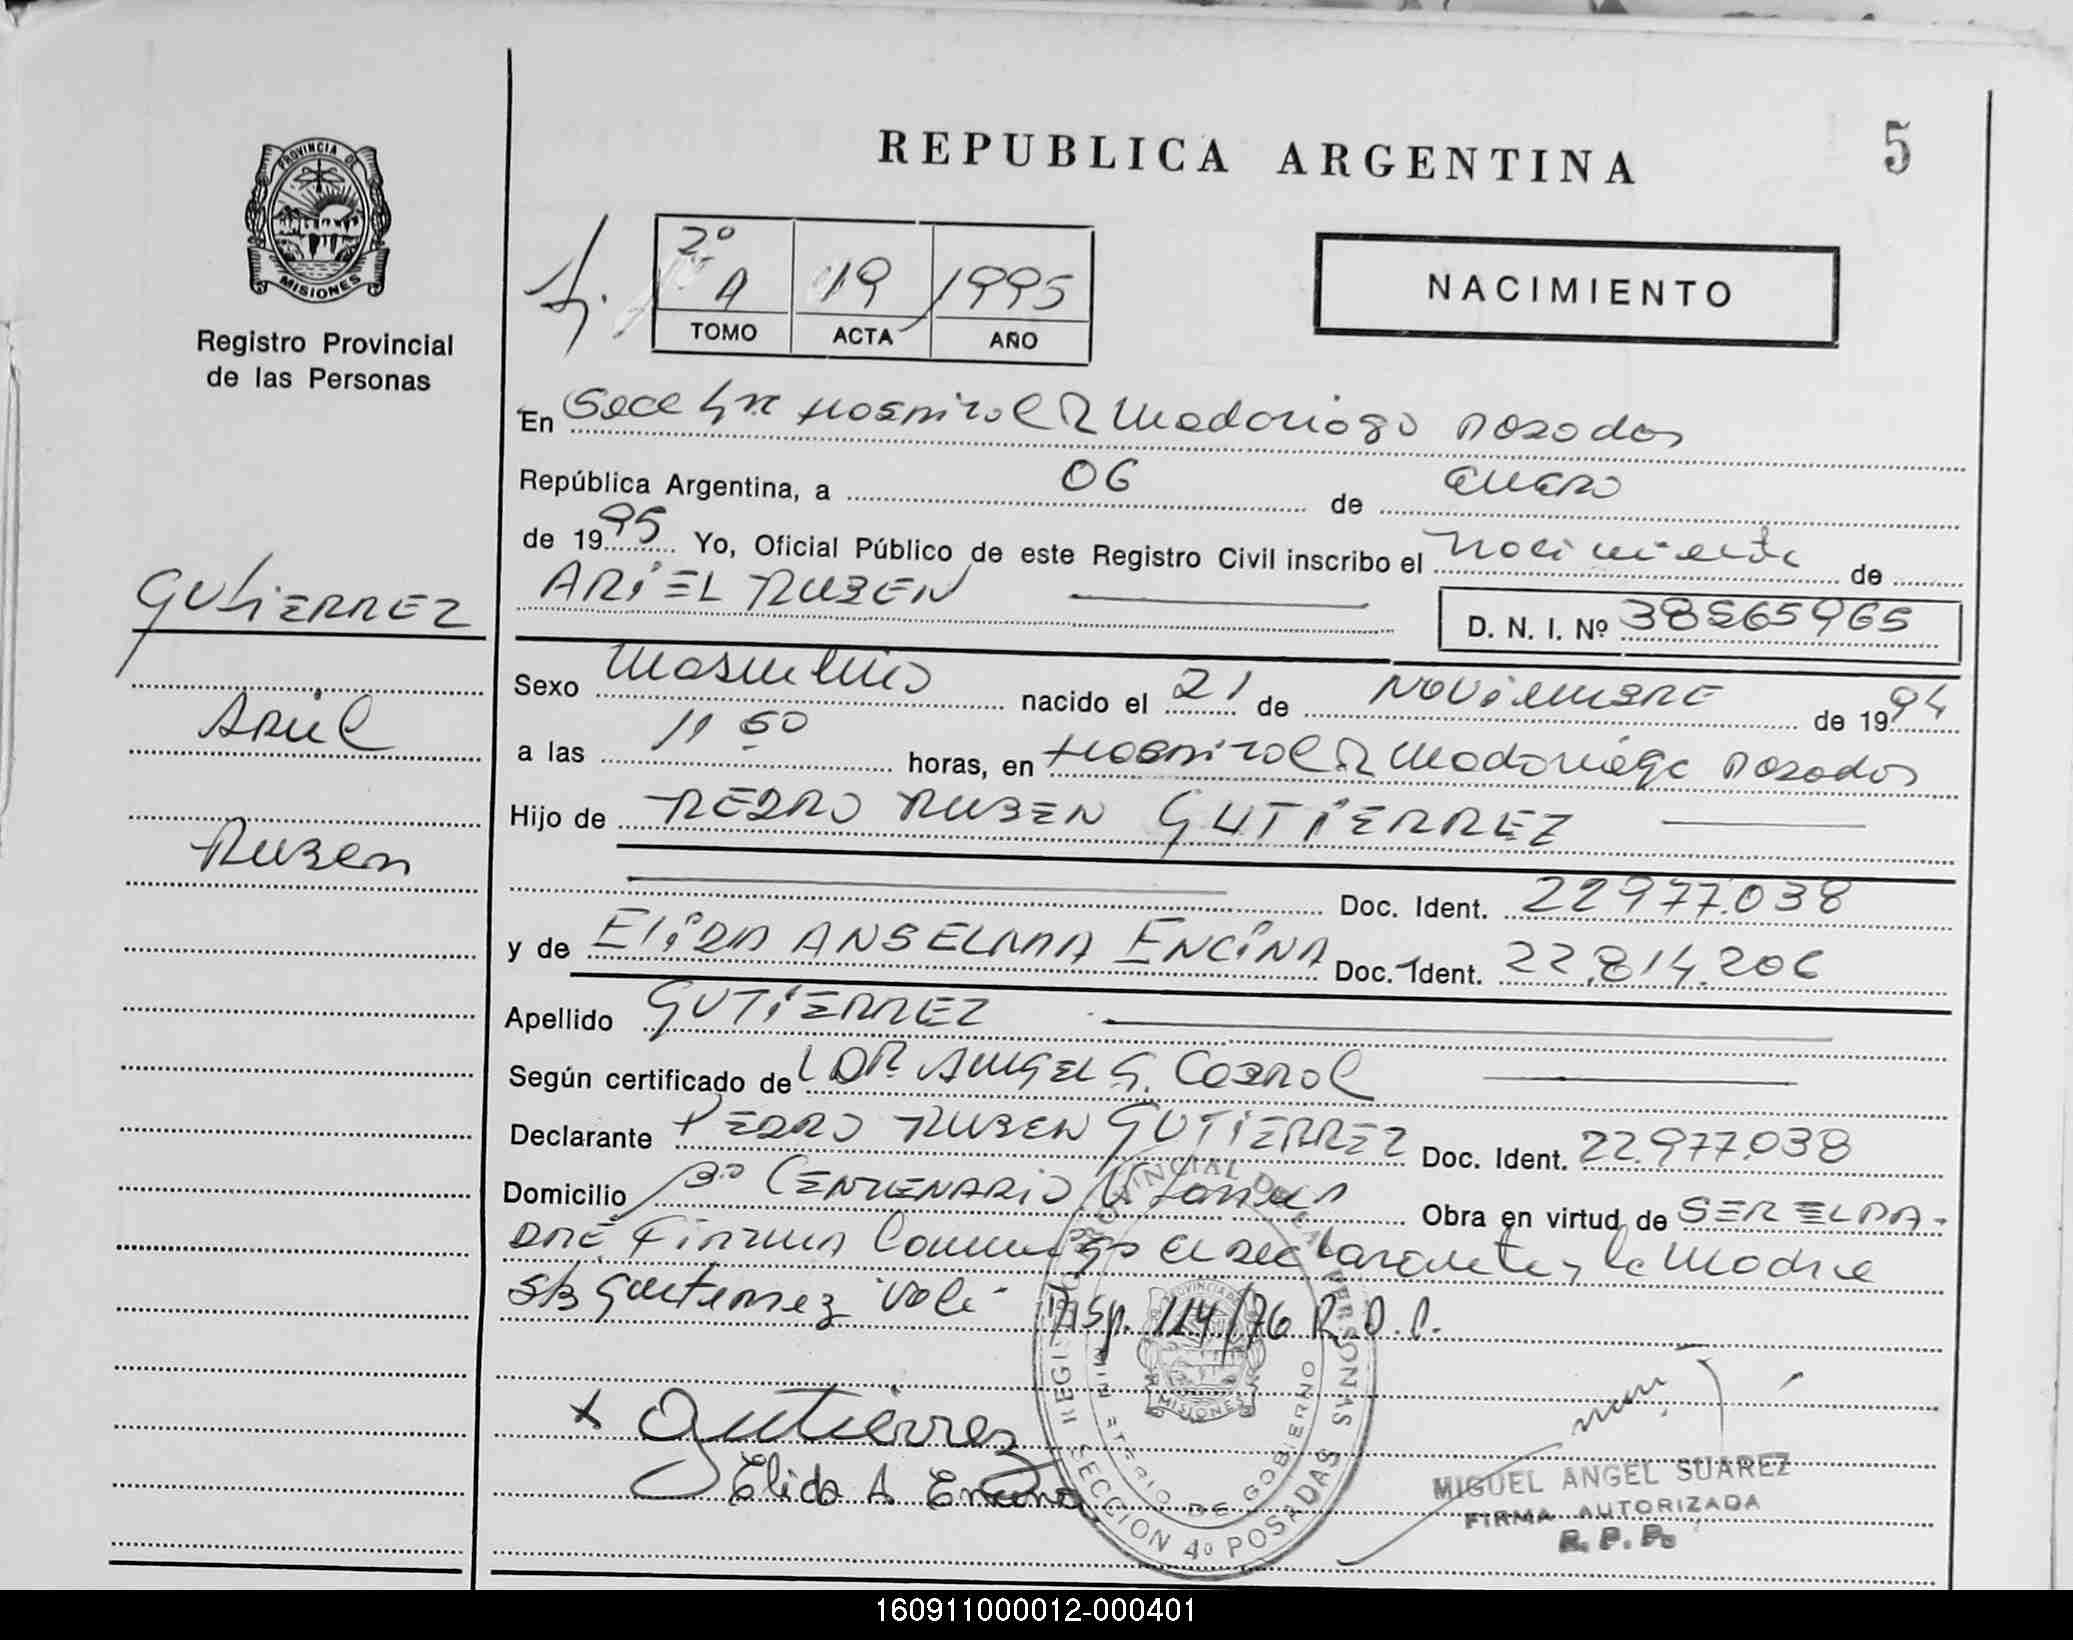 REPUBLICA ARGENTINA
5
PROVINCIA DE
MISIONES
Registro Provincial
de las Personas
2º
A
19
1995
TOMO
ACTA
AÑO
NACIMIENTO
En Secc 4ta Hospital R Madariaga Posadas
República Argentina, a 06 de enero
de 1995 Yo, Oficial Público de este Registro Civil inscribo el nacimiento de
ARIEL RUBEN
D. N. I. Nº 38565965
GUTIERREZ
Ariel
Ruben
Sexo Masculino nacido el 21 de NOVIEMBRE de 1994
a las 11 50 horas, en Hospital R Madariaga Posadas
Hijo de PEDRO RUBEN GUTIERREZ
Doc. Ident. 22977.038
y de ELIDA ANSELMA ENCINA Doc. Ident. 22.814.206
Apellido GUTIERREZ
Según certificado de DR. ANGEL G. Cabral
Declarante PEDRO RUBEN GUTIERREZ Doc. Ident. 22.977.038
Domicilio Bº CENTENARIO Obra en virtud de SER EL PA-
DRE Firma Conmigo el declarante y la Madre
s/b Gutierrez "Vale" Disp. 114/76 R.P.P.
x Gutierrez
Elida A Encina
REGISTRO PROVINCIAL DE LAS PERSONAS
MINISTERIO DE GOBIERNO
PROVINCIA DE
MISIONES
SECCION 4º POSADAS
MIGUEL ANGEL SUAREZ
FIRMA AUTORIZADA
R. P. P.
160911000012-000401